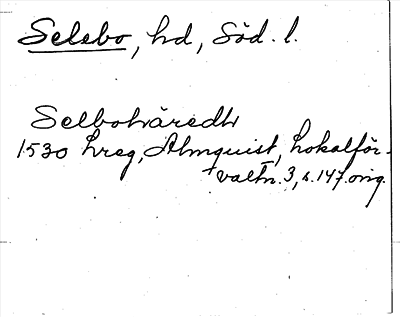 Selebo, hd, Söd. l.
Selbohäredh
1530 hreg, Almquist, Lokalför-
valtn. I, 3, s. 147. orig.